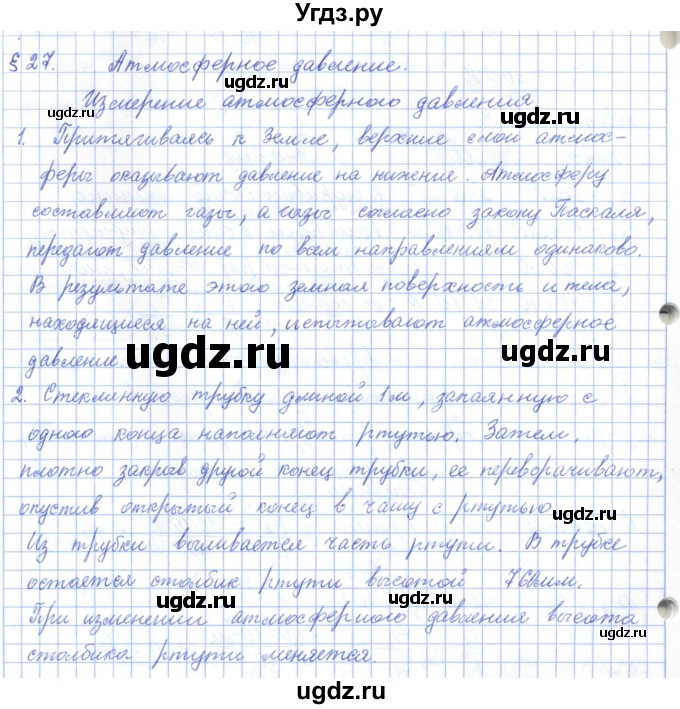 Угдз.ру
§ 27. Атмосферное давление.
ugdz.ru
Измерение атмосферного давления
ugdz.ru ugdz.ru
1. Притягиваясь к Земле, верхние слои атмос-
феры оказывают давление на нижение. Атмосферу
составляют газы, а газы согласно закону Паскаля,
передают давление по всем направлениям одинаково.
В результате этого земная поверхность и тела,
находящиеся на ней, испытывают атмосферное
давление.
ugdz.ru ugdz.ru
2. Стеклянную трубку длиной 1м, запаянную с
одного конца наполняют ртутью. Затем,
плотно закрыв другой конец трубки, ее переворачивают,
опустив открытый конец в чашу с ртутью.
ugdz.ru
Из трубки выливается часть ртути. В трубке
остается столбик ртути высотой 760мм.
ugdz.ru ugdz.ru
При изменении атмосферного давления высота
столбика ртути меняется.
ugdz.ru